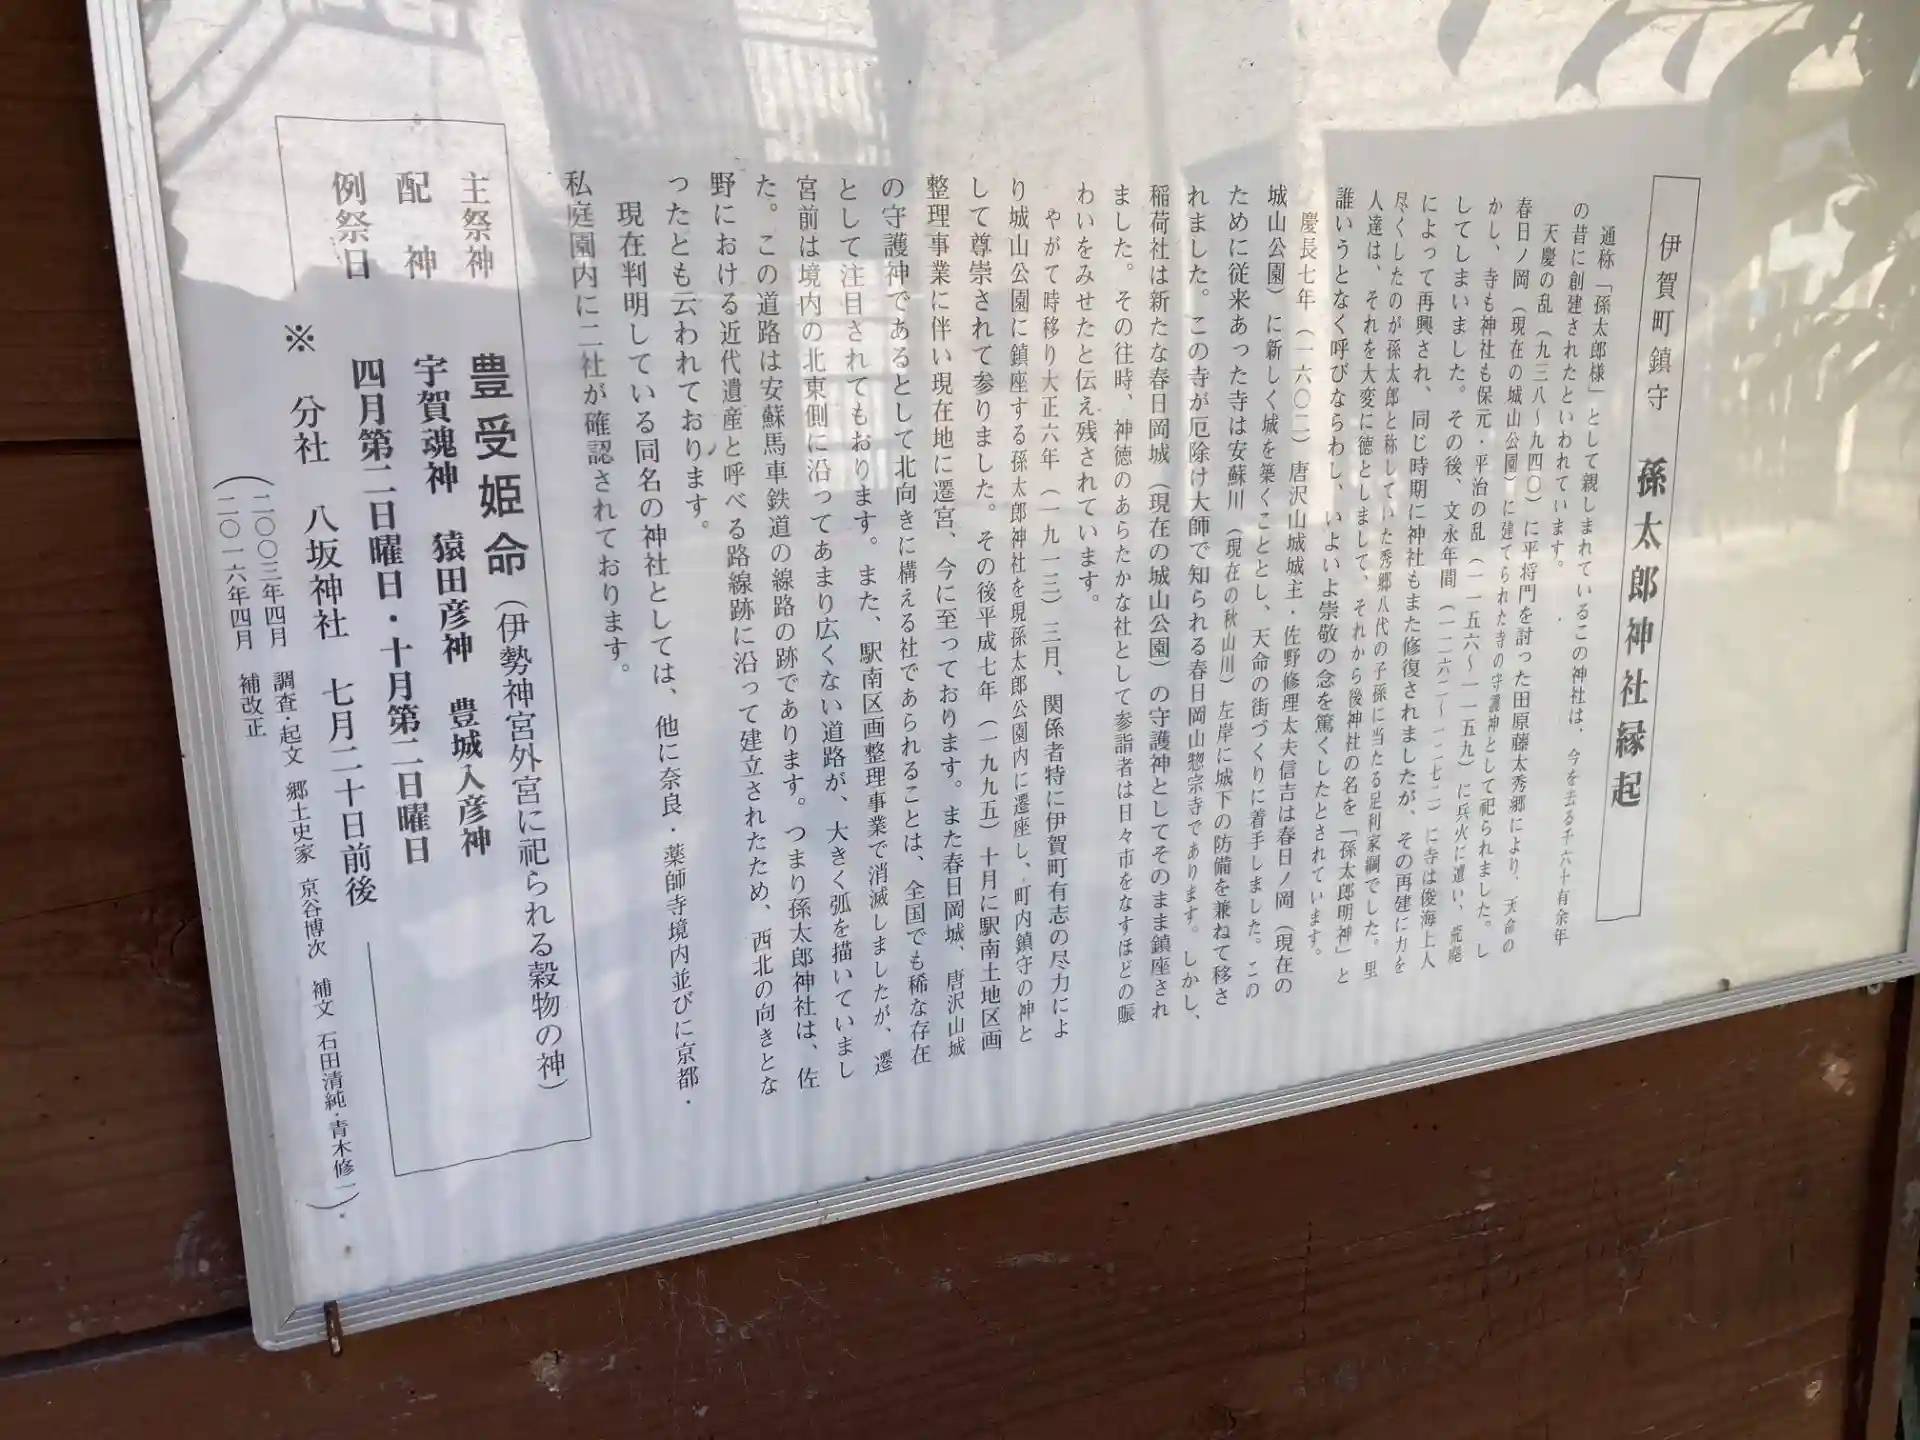 伊賀町鎮守　孫太郎神社縁起
通称「孫太郎様」として親しまれているこの神社は、今を去る千六十有余年
の昔に創建されたといわれています。
天慶の乱（九三八～九四〇）に平将門を討った田原藤太秀郷により、天命の
春日ノ岡（現在の城山公園）に建てられた寺の守護神として祀られました。し
かし、寺も神社も保元・平治の乱（一一五六～一一五九）に兵火に遭い、荒廃
してしまいました。その後、文永年間（一二六二～一二七二）に寺は俊海上人
によって再興され、同じ時期に神社もまた修復されましたが、その再建に力を
尽くしたのが孫太郎と称していた秀郷八代の子孫に当たる足利家綱でした。里
人達は、それを大変に徳としまして、それから後神社の名を「孫太郎明神」と
誰いうとなく呼びならわし、いよいよ崇敬の念を篤くしたとされています。
慶長七年（一六〇二）唐沢山城城主・佐野修理太夫信吉は春日ノ岡（現在の
城山公園）に新しく城を築くこととし、天命の街づくりに着手しました。この
ために従来あった寺は安蘇川（現在の秋山川）左岸に城下の防備を兼ねて移さ
れました。この寺が厄除け大師で知られる春日岡山惣宗寺であります。しかし、
稲荷社は新たな春日岡城（現在の城山公園）の守護神としてそのまま鎮座され
ました。その往時、神徳のあらたかな社として参詣者は日々市をなすほどの賑
わいをみせたと伝え残されています。
やがて時移り大正六年（一九一三）三月、関係者特に伊賀町有志の尽力によ
り城山公園に鎮座する孫太郎神社を現孫太郎公園内に遷座し、町内鎮守の神と
して尊崇されて参りました。その後平成七年（一九九五）十月に駅南土地区画
整理事業に伴い現在地に遷宮、今に至っております。また春日岡城、唐沢山城
の守護神であるとして北向きに構える社であられることは、全国でも稀な存在
として注目されてもおります。また、駅南区画整理事業で消滅しましたが、遷
宮前は境内の北東側に沿ってあまり広くない道路が、大きく弧を描いていまし
た。この道路は安蘇馬車鉄道の線路の跡であります。つまり孫太郎神社は、佐
野における近代遺産と呼べる路線跡に沿って建立されたため、西北の向きとな
ったとも云われております。
現在判明している同名の神社としては、他に奈良・薬師寺境内並びに京都・
私庭園内に二社が確認されております。
主祭神　豊受姫命（伊勢神宮外宮に祀られる穀物の神）
配　神　宇賀魂神　猿田彦神　豊城入彦神
例祭日　四月第二日曜日・十月第二日曜日
※　分社　八坂神社　七月二十日前後
（二〇〇三年四月　調査・起文　郷土史家　京谷博次　補文　石田清純・青木修一）
（二〇一六年四月　補改正